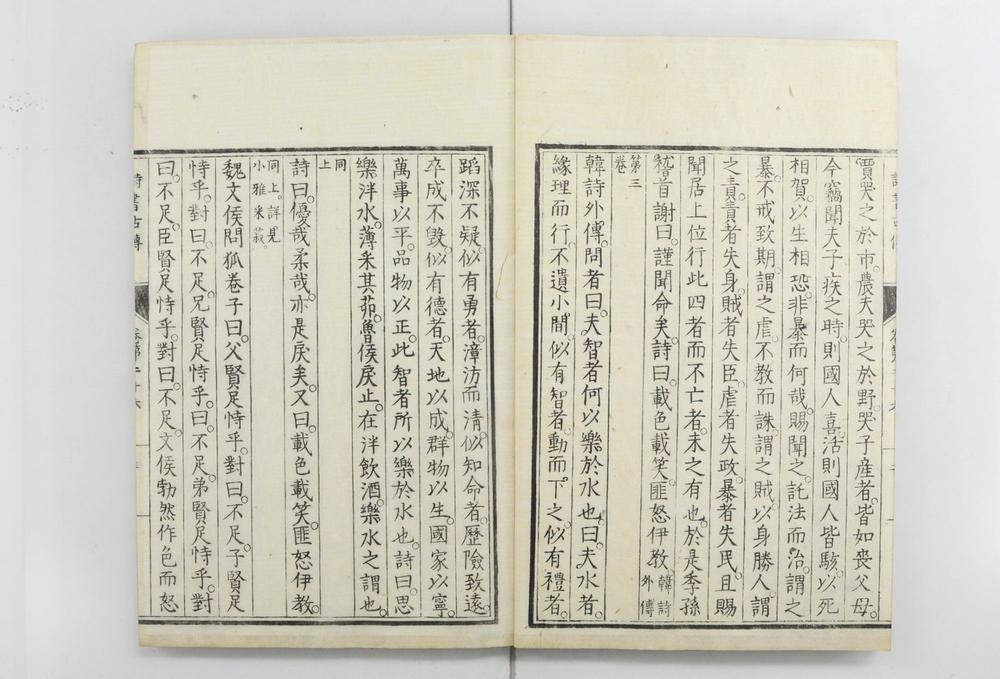 賈哭之於市。農夫哭之於野。哭子産者。皆如喪父母。
今竊聞夫子疾之時。則國人喜。活則國人皆駭。以死
相賀。以生相恐。非暴而何哉。賜聞之。託法而治。謂之
暴。不戒致期。謂之虐。不教而誅。謂之賊。以身勝人。謂
之責。責者失身。賊者失臣。虐者失政。暴者失民。且賜
聞居上位行此四者而不亡者。未之有也。於是季孫
稽首謝曰。謹聞命矣。詩曰。載色載笑。匪怒伊教 韓詩外傳
第三卷
韓詩外傳。問者曰。夫智者何以樂於水也。曰。夫水者。
緣理而行。不遺小間。似有智者。動而下之。似有禮者。
蹈深不疑。似有勇者。漳汸而清。似知命者。歷險致遠。
卒成不毀。似有德者。天地以成。群物以生。國家以寧。
萬事以平。品物以正。此智者所以樂於水也。詩曰。思
樂泮水。薄釆其茆。魯侯戾止。在泮飲酒。樂水之謂也。
同上
詩曰。優哉柔哉。亦是戾矣。又曰。載色載笑。匪怒伊教。
同上。詳見小雅釆菽。
魏文侯問狐卷子曰。父賢足恃乎。對曰。不足。子賢足
恃乎。對曰。不足。兄賢足恃乎。曰。不足。弟賢足恃乎。對
曰。不足。臣賢足恃乎。對曰。不足。文侯勃然作色而怒
詩書古傳